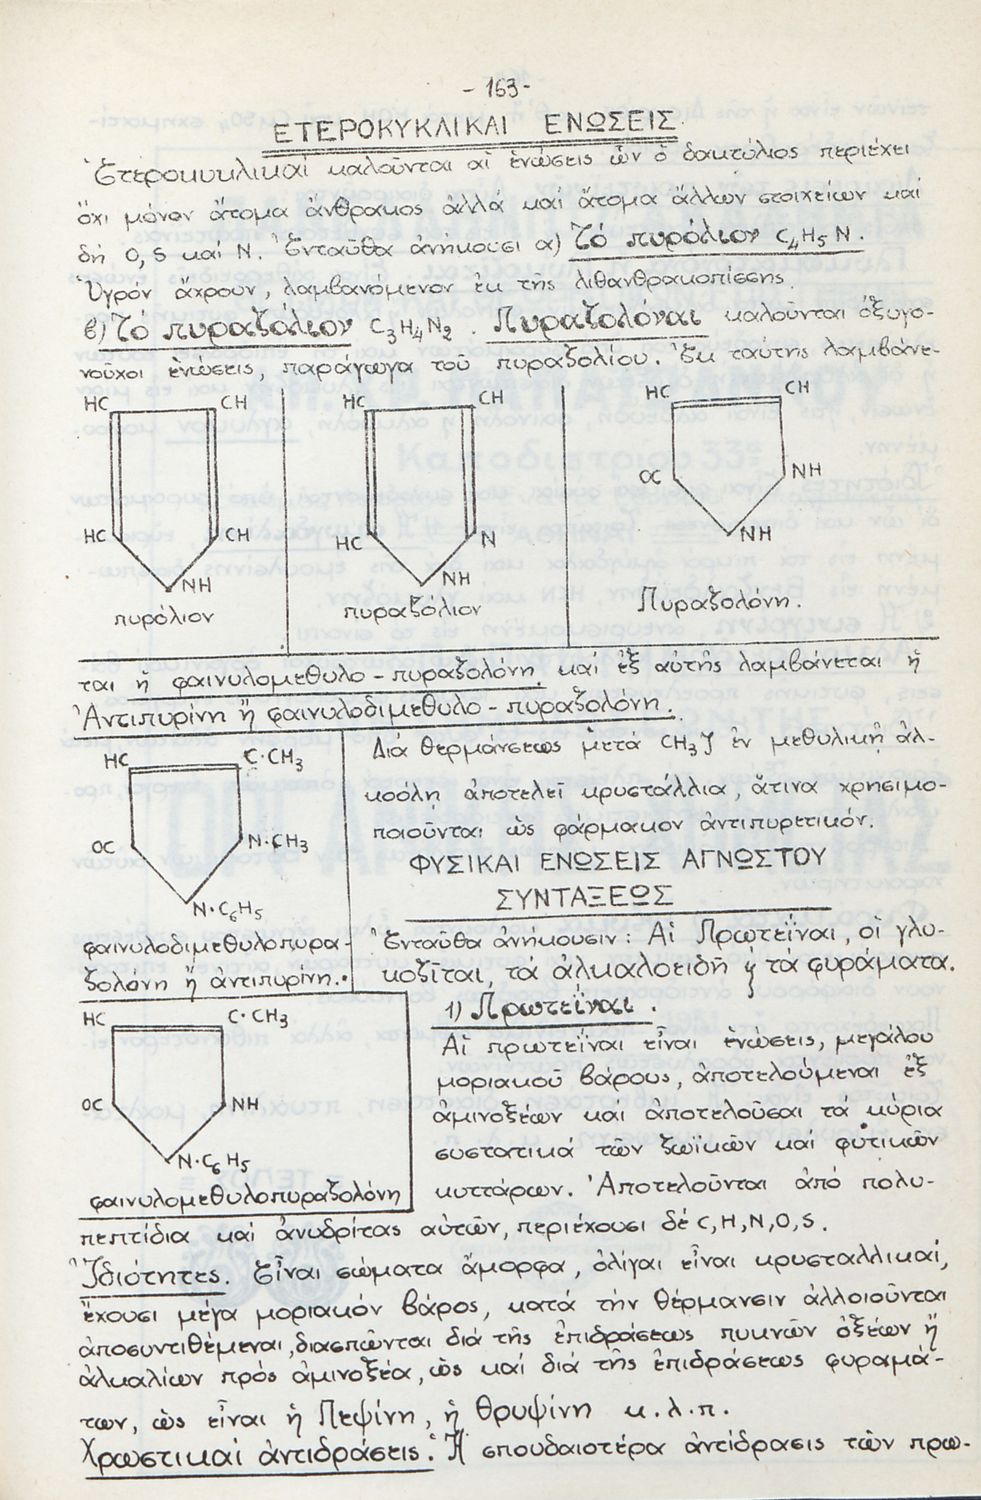 - 163 -
ΕΤΕΡΟΚΥΚΛΙΚΑΙ ΕΝΩΣΕΙΣ
Ἑτεροκυκλικαί καλοῦνται αἱ ἑνώσεις ὧν ὁ δακτύλιος περιέχει
ὄχι μόνον ἄτομα ἄνθρακος ἀλλά καί ἄτομα ἄλλων στοιχείων καί
δή O, S καί N. Ἐνταῦθα ἀνήκουσι α) Τό πυρόλιον C4H5N.
Ὑγρόν ἄχρουν, λαμβανόμενον ἐκ τῆς λιθανθρακοπίσσης.
β) Τό πυραζόλιον C3H4N2. Πυραζολόναι καλοῦνται ὀξυγο-
νοῦχοι ἑνώσεις, παράγωγα τοῦ πυραζολίου. Ἐκ ταύτης λαμβάνε-
HC CH HC CH HC CH
OC NH
HC CH HC N NH
NH NH
πυρόλιον πυραζόλιον Πυραζολόνη.
ται ἡ φαινυλομεθυλο-πυραζολόνη καί ἐξ αὐτῆς λαμβάνεται ἡ
Ἀντιπυρίνη ἤ φαινυλοδιμεθυλο-πυραζολόνη.
HC C·CH3
OC N·CH3
N·C6H5
φαινυλοδιμεθυλοπυρα-
ζολόνη ἤ ἀντιπυρίνη.
Διά θερμάνσεως μετά CH3J ἐν μεθυλικῇ ἀλ-
κοόλῃ ἀποτελεῖ κρυστάλλια, ἅτινα χρησιμο-
ποιοῦνται ὡς φάρμακον ἀντιπυρετικόν.
ΦΥΣΙΚΑΙ ΕΝΩΣΕΙΣ ΑΓΝΩΣΤΟΥ
ΣΥΝΤΑΞΕΩΣ
Ἐνταῦθα ἀνήκουσιν: Αἱ Πρωτεΐναι, οἱ γλυ-
κοζῖται, τά ἀλκαλοειδῆ ϗ τά φυράματα.
HC C·CH3
OC NH
N·C6H5
φαινυλομεθυλοπυραζολόνη
1) Πρωτεΐναι.
Αἱ πρωτεΐναι εἶναι ἑνώσεις, μεγάλου
μοριακοῦ βάρους, ἀποτελούμεναι ἐξ
ἀμινοξέων καί ἀποτελοῦσαι τά κύρια
συστατικά τῶν ζωϊκῶν καί φυτικῶν
κυττάρων. Ἀποτελοῦνται ἀπό πολυ-
πεπτίδια καί ἀνυδρίτας αὐτῶν, περιέχουσι δέ C, H, N, O, S.
Ἰδιότητες. Εἶναι σώματα ἄμορφα, ὀλίγαι εἶναι κρυσταλλικαί,
ἔχουσι μέγα μοριακόν βάρος, κατά τήν θέρμανσιν ἀλλοιοῦνται
ἀποσυντιθέμεναι, διασπῶνται διά τῆς ἐπιδράσεως πυκνῶν ὀξέων ἤ
ἀλκαλίων πρός ἀμινοξέα, ὡς καί διά τῆς ἐπιδράσεως φυραμά-
των, ὡς εἶναι ἡ Πεψίνη, ἡ θρυψίνη κ.λ.π.
Χρωστικαί ἀντιδράσεις. Ἡ σπουδαιοτέρα ἀντίδρασις τῶν πρω-